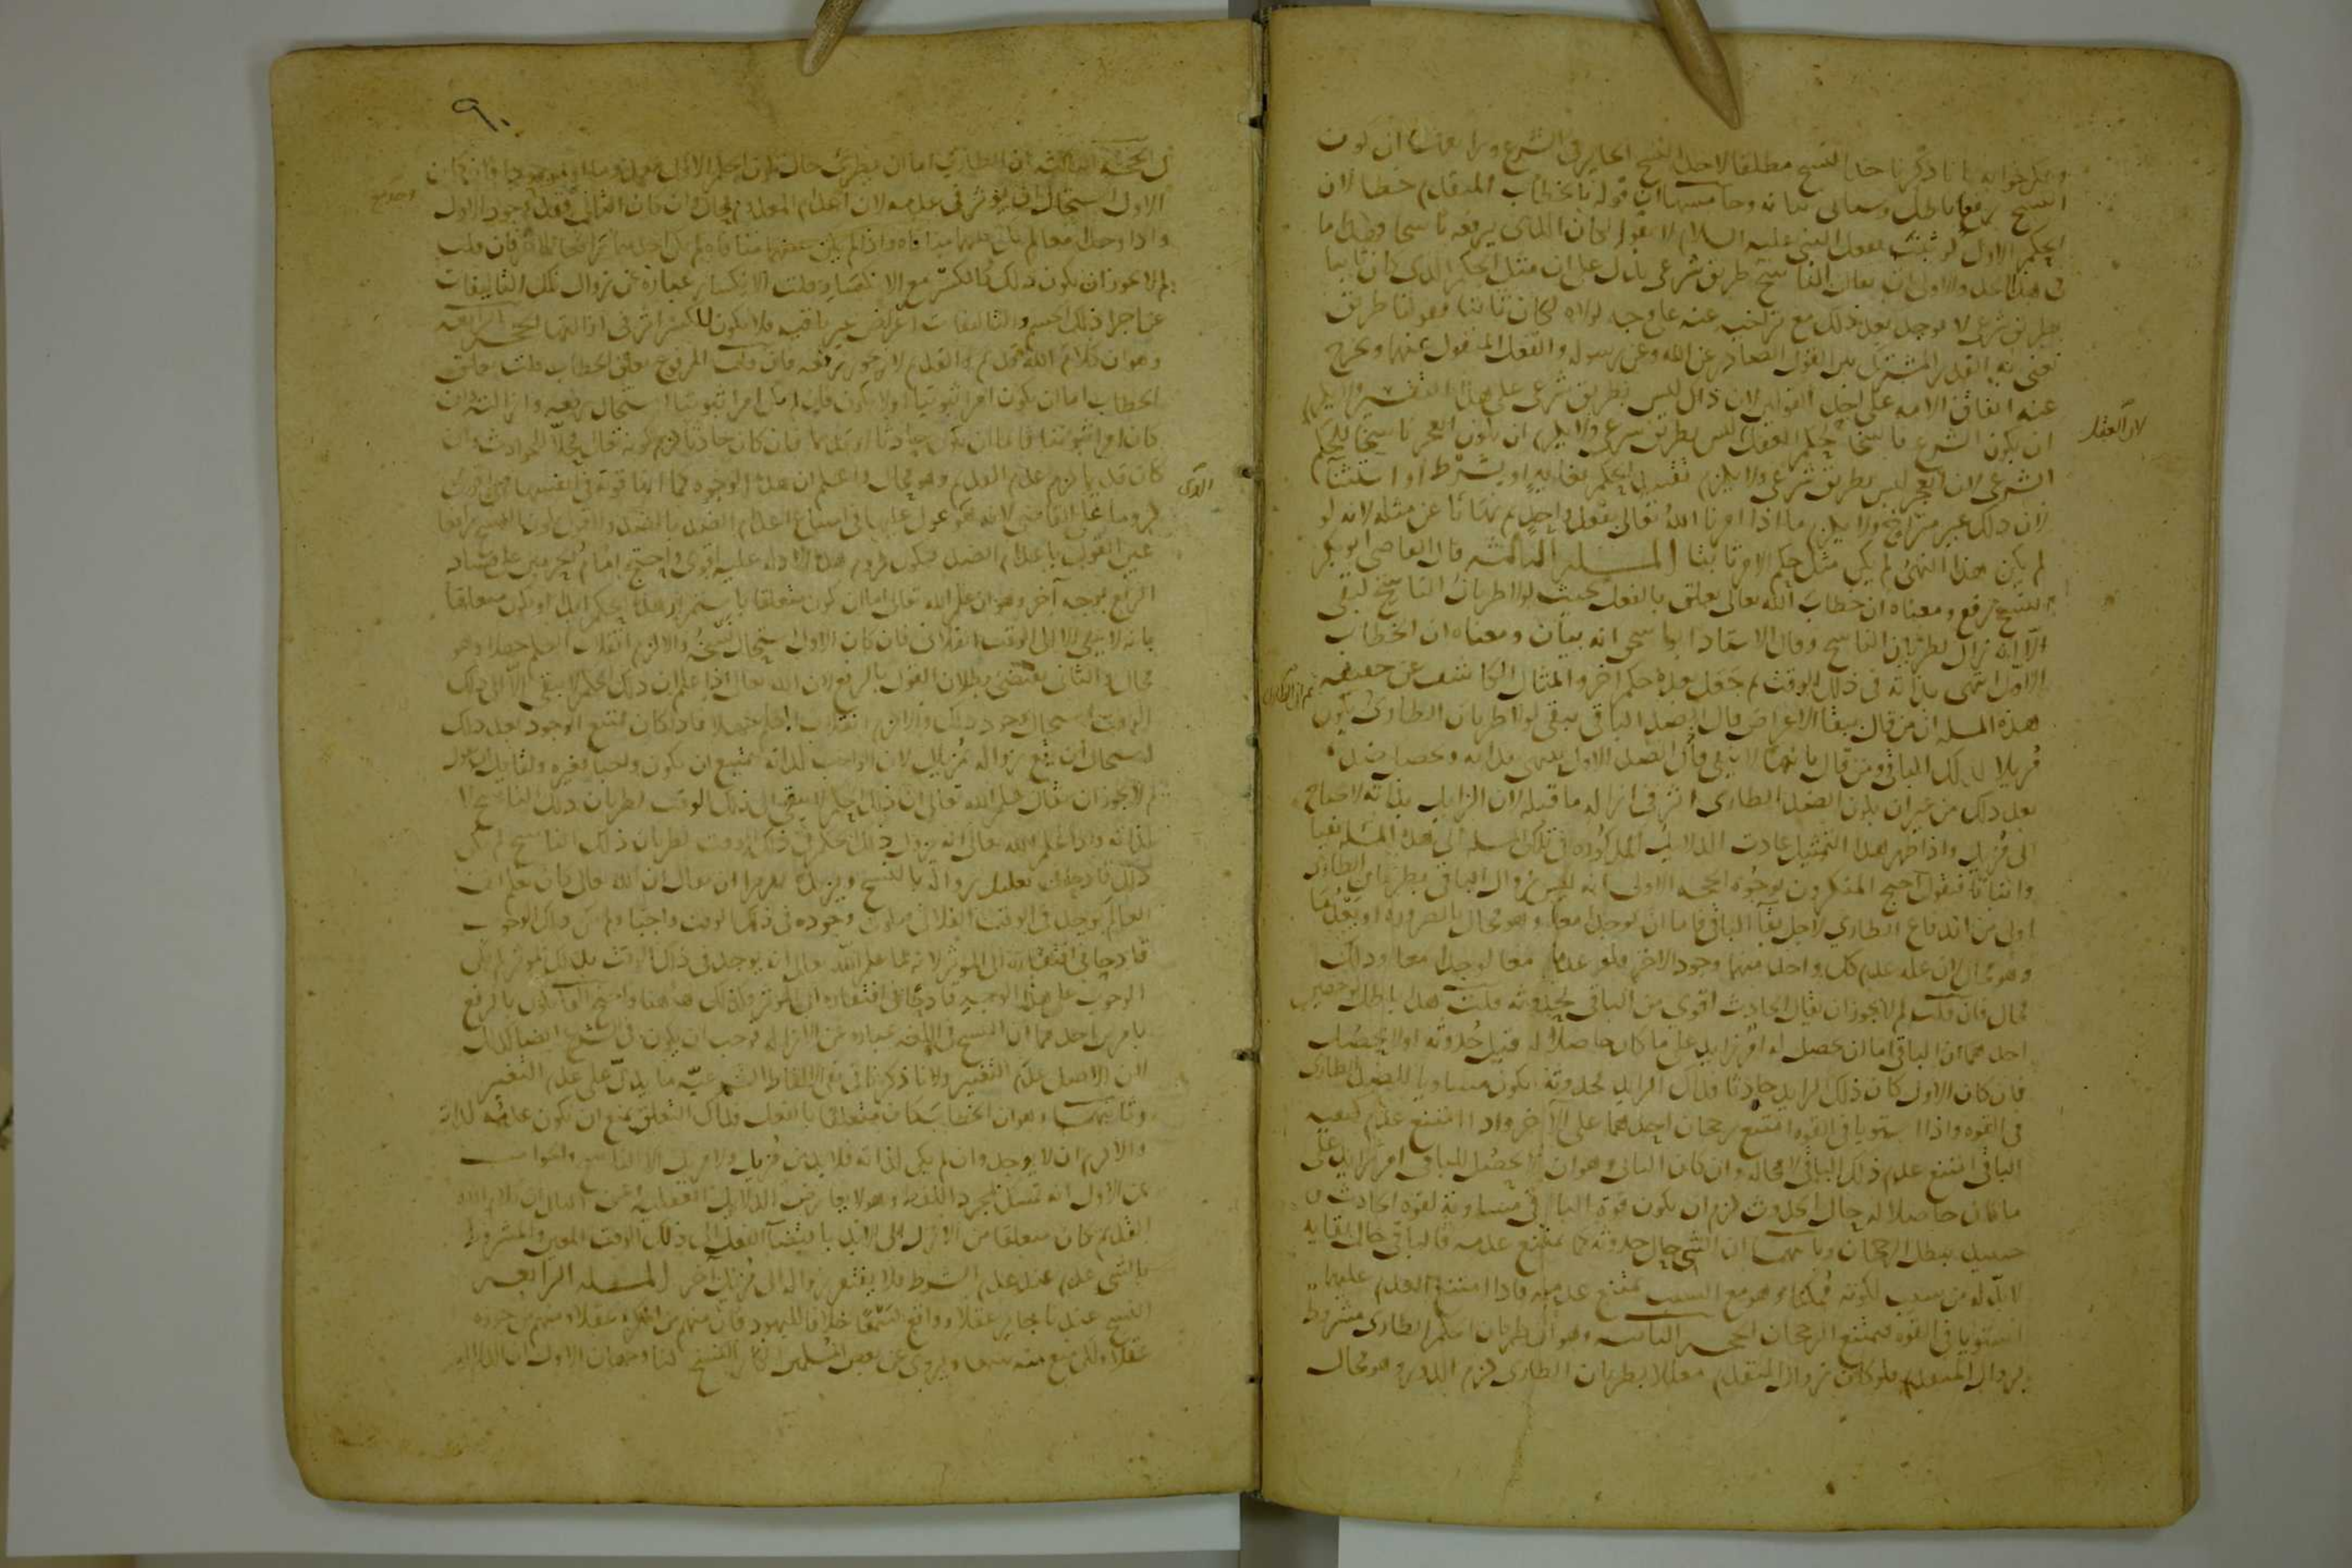 ويمكن جوابه بانا ذكرنا حد النسخ مطلقا لا حد النسخ الجايز في الشرع ورابعها ان كون
النسخ رفعا باطل وسياتي بيانه وخامسها ان قوله بالخطاب المتقدم خطا لان
الحكم الاول لو ثبت بفعل النبي عليه السلام لا بقوله لكان الذي يرفعه ناسخا وبطل ما
في هذا الحد والاولى ان يقال الناسخ طريق شرعي يدل على ان مثل الحكم الذي كان ثابتا
بطريق شرعي لا يوجد بعد ذلك مع تراخيه عنه على وجه لولاه لكان ثابتا فقولنا طريق
نعني به القدر المشترك بين القول الصادر عن الله وعن رسوله والفعل المنقول عنهما ويخرج
عنه اتفاق الامه على احد القولين لان ذلك ليس بطريق شرعي على هذا التفسير ولا يلزم
ان يكون الشرع ناسخا لحكم العقل ليس بطريق شرعي ولا يلزم ان يكون العجز ناسخا لحكم
لان العقل
الشرعي لان العجز ليس بطريق شرعي ولا يلزم تقييد الحكم بغايه او بشرط او استثنا
لان ذلك غير متراخ ولا يلزم ما اذا امرنا الله تعالى بفعل واحد ثم نهانا عن مثله لانه لو
لم يكن هذا النهي لم يكن مثل حكم الامر ثابتا المسله الثالثه قال القاضي ابو بكر
النسخ رفع ومعناه ان خطاب الله تعالى تعلق بالفعل بحيث لولا طريان الناسخ لبقي
الا انه زال لطريان الناسخ وقال الاستاد ابو اسحق انه بيان ومعناه ان الخطاب
الاول انتهى بذاته في ذلك الوقت ثم حصل بعده حكم آخر والمثال الكاشف عن حقيقه
هذه المسله ان من قال ببقا الاعراض قال الضد الباقي يبقى لولا طريان الطاري يكون
ثم ان الطاري
مزيلا لذلك الباقي ومن قال بانها لا تبقى قال الضد الاول ينتهي بذاته ويحصل ضده
بعد ذلك من غير ان يكون للضد الطاري اثر في ازاله ما قبله لان الزايل بذاته لا يحتاج
الى مزيل واذا ظهر هذا التمثيل عادت الدلايل المذكوره في تلك المسله الى هذه المسله نفيا
واثباتا فنقول احتج المنكرون بوجوه الحجه الاولى انه ليس زوال الباقي بطريان الطاري
اولى من اندفاع الطاري لاجل بقآ الباقي فاما ان يوجدا معا وهو محال بالضروره او يعدما معا
وهو محال لان عله عدم كل واحد منهما وجود الاخر فلو عدما معا لوجدا معا وذلك
محال فان قلت لم لا يجوز ان يقال الحادث اقوى من الباقي لحدوثه قلت هذا باطل لوجهين
احدهما ان الباقي اما ان يحصل له امر زايد على ما كان حاصلا له قبل حدوثه او لا يحصل
فان كان الاول كان ذلك الزايد حادثا فذلك الزايد لحدوثه يكون مساويا للضد الطاري
في القوه واذا استويا في القوه امتنع رجحان احدهما على الآخر واذا امتنع عدم كيفيه
الباقي امتنع عدم ذلك الباقي لا محاله وان كان الثاني وهو ان لا يحصل للباقي امر زايد على
ما كان حاصلا له حال الحدوث لزم ان يكون قوة الباقي مساوية لقوه الحادث
فيبطل الرجحان وثانيهما ان الشي حال حدوثه كما يمتنع عدمه فالباقي حال بقايه
لا بد له من سبب لكونه ممكنا وهو مع السبب يمتنع عدمه فاذا امتنع العدم عليهما
استويا في القوه فيمتنع الرجحان الحجه الثانيه وهو ان طريان الحكم الطاري مشروط
بزوال المتقدم فلو كان زوال المتقدم معللا بطريان الطاري لزم الدور وهو محال
٩٠
الحجه الثالثه ان الطاري اما ان يطرى حال كون الحكم الاول معدوما او موجودا فان كان
الاول استحال ان يوثر في عدمه لان اعدام المعدوم محال وان كان الثاني فقد وجد الاول
واذا وجدا معا لم يكن بينهما منافاه واذا لم يكن بينهما منافاه لم يكن احدهما رافعا للآخر فان قلت
لم لا يجوز ان يكون ذلك كالكسر مع الانكسار قلت الانكسار عباره عن زوال تلك التاليفات
عن اجزا ذلك الجسم والتاليفات اعراض غير باقيه فلا يكون للكسر اثر في ازالتها الحجه الرابعه
وهو ان كلام الله قديم والقديم لا يجوز رفعه فان قلت المرفوع تعلق الخطاب قلت تعلق
الخطاب اما ان يكون امرا ثبوتيا او لا يكون فان لم يكن امرا ثبوتيا استحال رفعه وازالته وان
كان امرا ثبوتيا فاما ان يكون حادثا او قديما فان كان حادثا لزم كونه تعالى محلا للحوادث وان
كان قديما لزم عدم القديم وهو محال واعلم ان هذه الوجوه كما انها قويه في نفسها فهي اقوى
لزوما على القاضي لانه هو عول عليها في امتناع اعدام الضد بالضد والقول بكون النسخ رفعا
عين القول باعدام الضد فيكون لزوم هذه الادله عليه اقوى واحتج امام الحرمين على فساد
الرفع بوجه آخر وهو ان علم الله تعالى اما ان يكون متعلقا باستمرار هذا الحكم ابدا او يكون متعلقا
بانه لا يبقى الا الى الوقت الفلاني فان كان الاول استحال نسخه والا لزم انقلاب العلم جهلا وهو
محال والثاني يقتضي بطلان القول بالرفع لان الله تعالى اذا علم ان ذلك الحكم لا يبقى الا الى ذلك
الوقت استحال وجوده بعد ذلك والا لزم انقلاب العلم جهلا فاذا كان ممتنع الوجود بعد ذلك
استحال ان يقع زواله بمزيل لان الواجب لذاته يمتنع ان يكون واجبا بغيره ولقايل ان يقول
لم لا يجوز ان يقال علم الله تعالى ان ذلك الحكم لا يبقى الى ذلك الوقت لطريان ذلك الناسخ لا
لذاته واذا علم الله تعالى انه يزول ذلك الحكم في ذلك الوقت لطريان ذلك الناسخ لم يكن
ذلك قادحا في تعليل زواله بالنسخ ويزيده تقريرا ان يقال ان الله تعالى كان عالما بان
العالم يوجد في الوقت الفلاني فيكون وجوده في ذلك الوقت واجبا ولم يكن ذلك الوجوب
قادحا في افتقاره الى الموثر لانه لما علم الله تعالى انه يوجد في ذلك الوقت بذلك الموثر لم يكن
الوجوب على هذا الوجه قادحا في افتقاره الى الموثر وكذلك ههنا واحتج القايلون بالرفع
بامرين احدهما ان النسخ في اللغه عباره عن الازاله فوجب ان يكون في الشرع ايضا كذلك
لان الاصل عدم التغيير ولانا ذكرنا في نفي الالفاظ الشرعيه ما يدل على عدم التغيير
وثانيهما وهو ان الخطاب كان متعلقا بالفعل فذلك التعلق يمتنع ان يكون عدمه لذاته
والا لزم ان لا يوجد وان لم يكن لذاته فلا بد من مزيل ولا مزيل الا الناسخ والجواب
عن الاول انه تمسك بمجرد اللفظ وهو لا يعارض الدلايل العقليه وعن الثاني ان كلام الله
القديم كان متعلقا من الازل الى الابد باقتضآ الفعل الى ذلك الوقت المعين والمشروط
بالشي عدم عند عدم الشرط فلا يفتقر زواله الى مزيل آخر المسله الرابعه
النسخ عندنا جايز عقلا وواقع سمعا خلافا لليهود فان منهم من انكره عقلا ومنهم من جوزه
عقلا ولكن منع منه سمعا ويروى عن بعض المسلمين انكار النسخ لنا وجهان الاول ان الدلاله